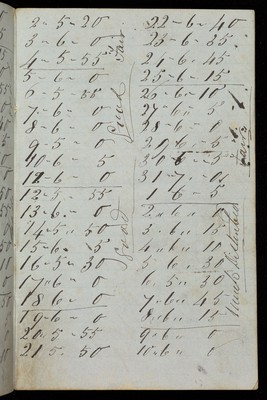 2 - 5 - 20
3 - 6 - 0
4 - 5 - 55
5 - 6 - 0
6 - 5 - 55
7 - 6 - 0
8 - 6 - 0
9 - 5 - 0
10 - 6 - 5
12 - 6 - 0
12 - 5 - 55
13 - 6 - 0
14 - 5 - 50
15 - 6 - 5
16 - 5 - 30
17 - 6 - 0
18 - 6 - 0
19 - 6 - 0
20 - 5 - 55
21 - 5 - 50
22 - 6 - 40
23 - 6 - 35
24 - 6 - 45
25 - 6 - 15
26 - 6 - 10
27 - 6 - 5
28 - 6 - 0
29 - 6 - 5
30 - 6 - 5
31 - 7 - 0
1 6 - 5
2 - 6 - 0
3 - 6 - 15
4 - 6 - 10
5 - 6 - 30
6 - 5 - 30
7 - 6 - 45
8 - 6 - 15
9 - 6 - 0
10 - 6 - 0